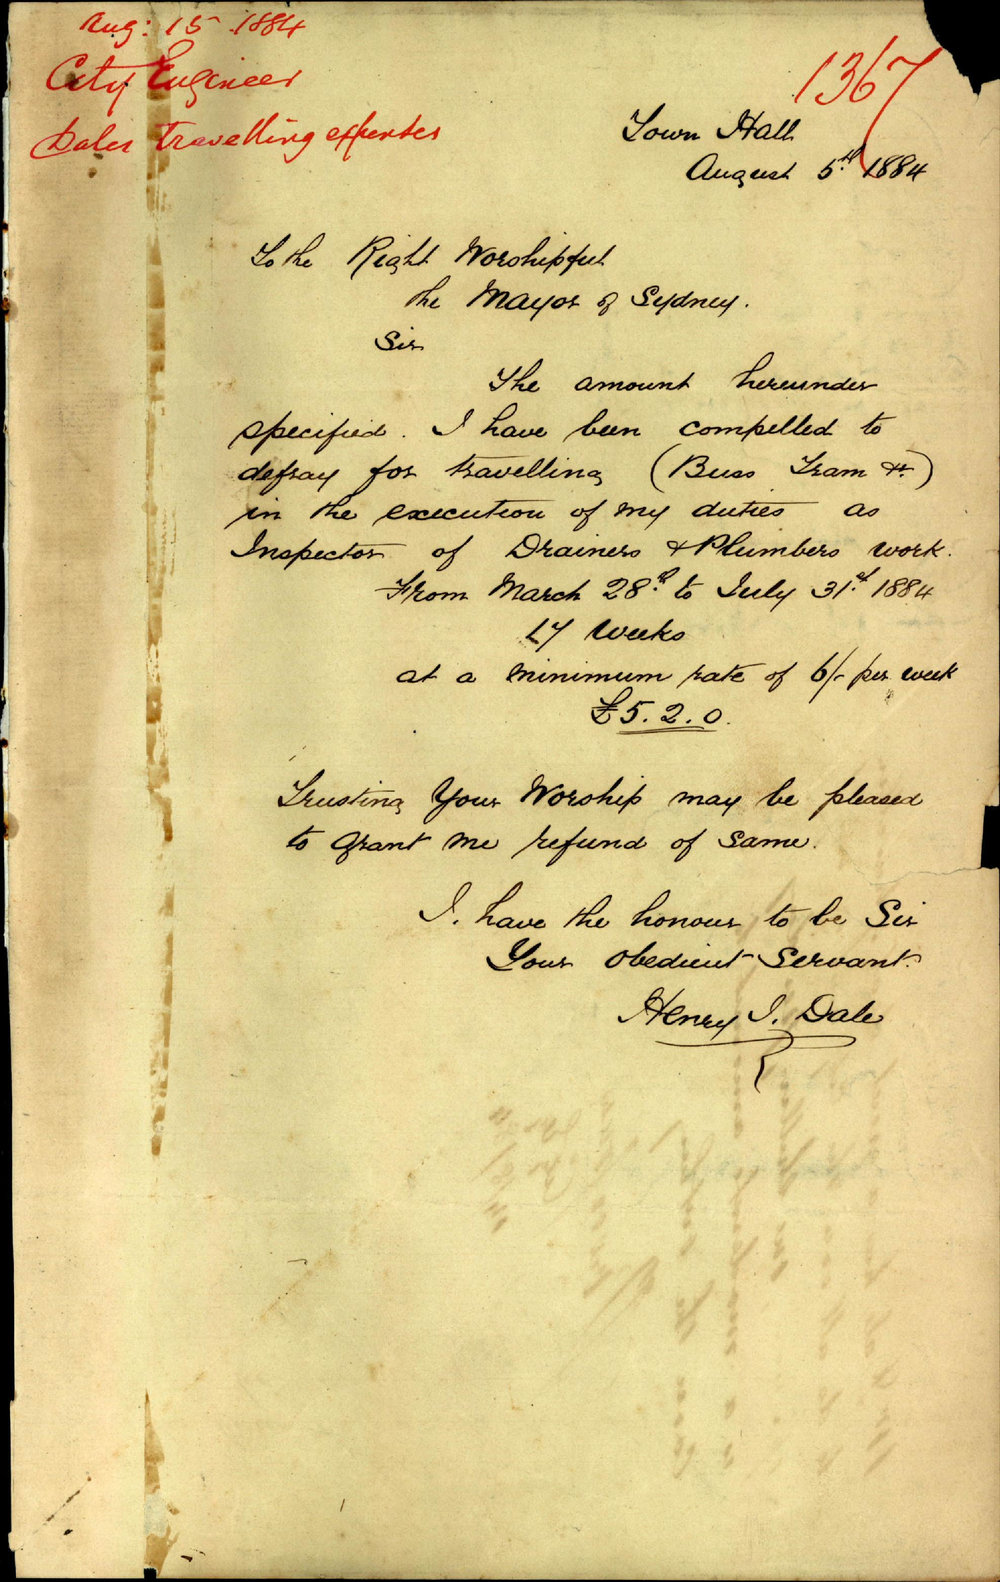 Aug: 15 1884
City Engineer
Dales travelling expenses
1367
Town Hall
August 5th 1884
To the Right Worshipful
the Mayor of Sydney.
Sir
The amount hereunder
specified. I have been compelled to
defray for travelling (Buss Tram &c)
in the execution of my duties as
Inspector of Drainers & Plumbers work.
From March 28th to July 31st 1884
17 weeks
at a minimum rate of 6/- per week
£5.2.0.
Trusting Your Worship may be pleased
to grant me refund of same.
I. have the honour to be Sir
Your obedient Servant.
Henry I. Dale